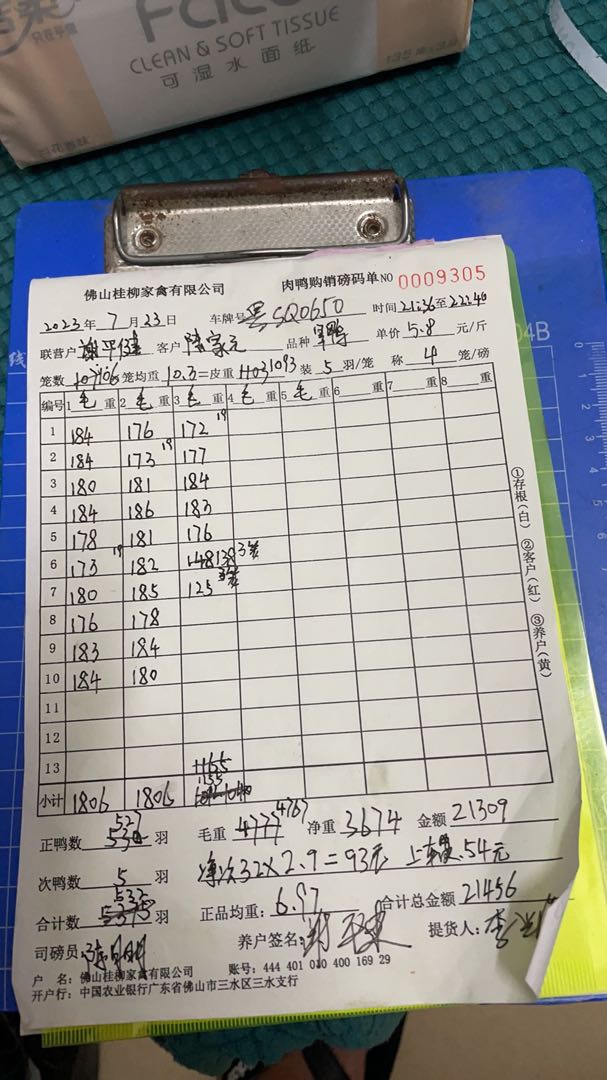 CLEAN & SOFT TISSUE
可湿水面纸
佛山桂柳家禽有限公司 肉鸭购销磅码单 NO 0009305
2023年 7月23日 车牌号 SQ0650 时间 21:36至22:40
联营户 谢平健 客户 陆家元 品种 单价 5.8 元/斤
笼数 106 笼均重 10.3 =皮重 1093 装 5 羽/笼 称 4 笼/磅
编号 1 毛 重 2 毛 重 3 毛 重 4 毛 重 5 毛 重 6 重 7 重 8 重
1 184 176 172 19
2 184 173 19 177
3 180 181 184
4 184 186 183
5 178 181 176
6 173 19 182 3笼
7 180 185 125
8 176 178
9 183 184
10 184 180
11
12
13 1155
小计 1806 1806
正鸭数 527 羽 毛重 4777 4767 净重 3674 金额 21309
次鸭数 5 羽 净次32×2.9=93元 上车 54元
合计数 532 羽 正品均重: 6.97 合计总金额 21456
司磅员: 养户签名: 提货人:
户 名: 佛山桂柳家禽有限公司 账号: 444 401 010 400 169 29
开户行: 中国农业银行广东省佛山市三水区三水支行
①存根(白) ②客户(红) ③养户(黄)